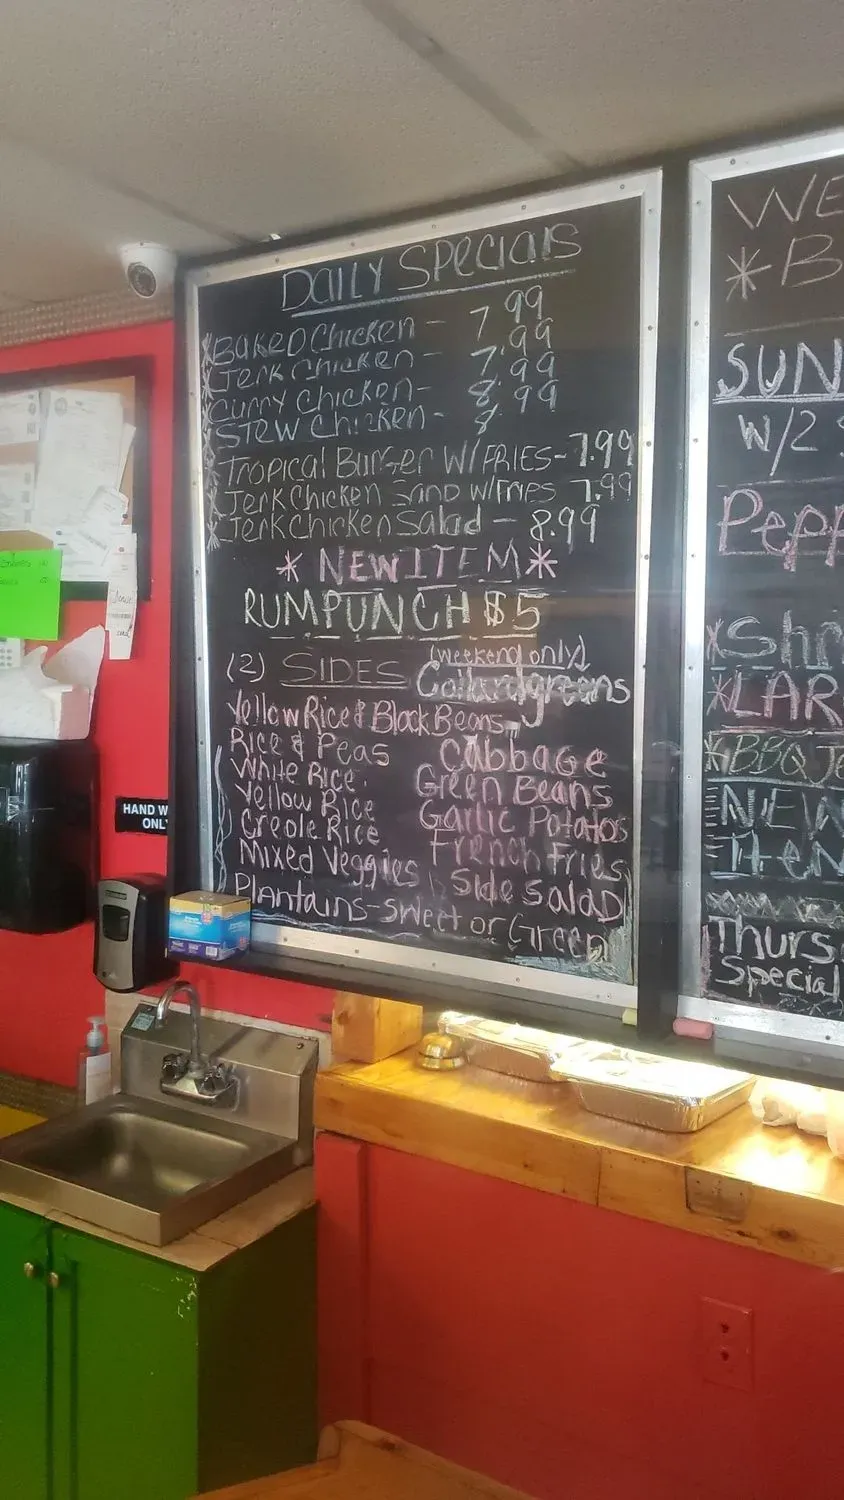 DAILY SPECIALS
*BAKED CHICKEN - 7.99
*JERK CHICKEN - 7.99
*CURRY CHICKEN - 8.99
*STEW CHICKEN - 8.99
*TROPICAL BURGER W/FRIES - 7.99
*JERK CHICKEN SAND W/FRIES 7.99
*JERK CHICKEN Salad - 8.99
* NEW ITEM *
RUM PUNCH $5
(2) SIDES (weekend only)
Collardgreens
Yellow Rice & Black Beans
Rice & Peas Cabbage
White Rice Green Beans
Yellow Rice Garlic Potatos
Creole Rice French Fries
Mixed Veggies Side Salad
Plantains - sweet or Green
WE
*B
SUN
W/2
Pepp
*Shr
*LAR
*BBQ Je
NEW
ITEM
Thurs
Special
HAND W
ONL